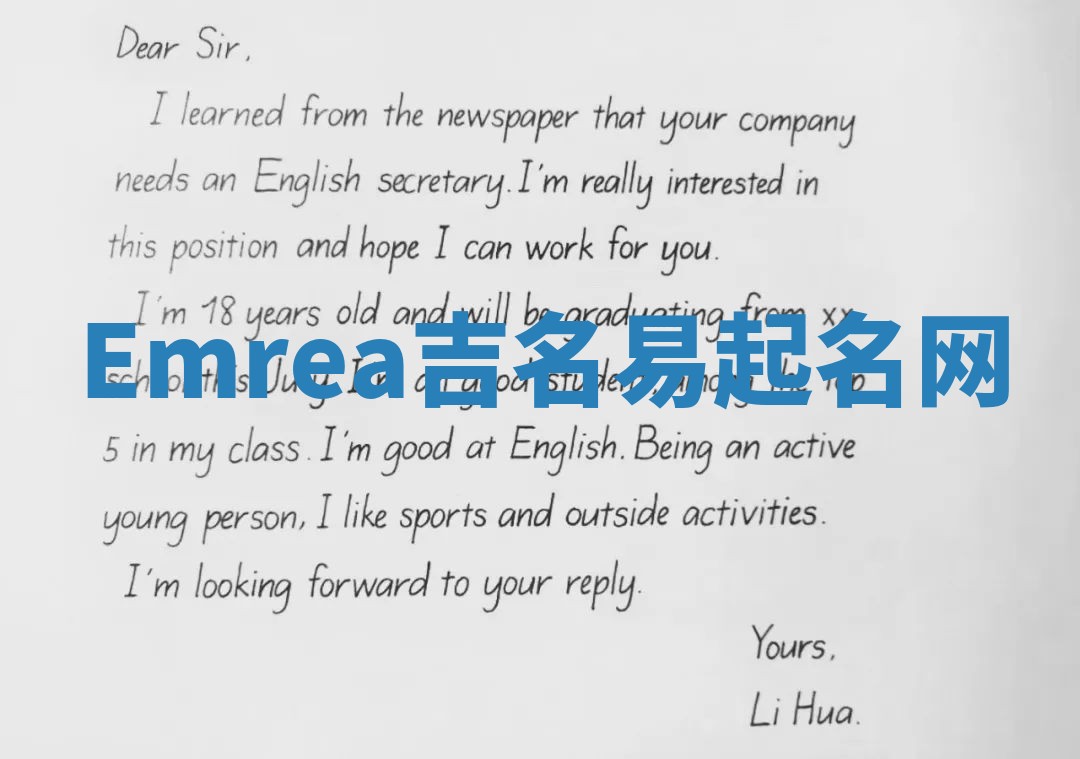 Dear Sir,
I learned from the newspaper that your company
needs an English secretary. I'm really interested in
this position and hope I can work for you.
I'm 18 years old and will be graduating from xx
Emrea吉名易起名网
school this July. I'm a good student, among the top
5 in my class. I'm good at English. Being an active
young person, I like sports and outside activities.
I'm looking forward to your reply.
Yours,
Li Hua.